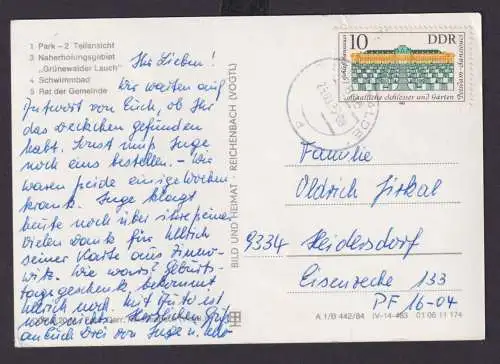 1 Park - 2 Teilansicht
3 Naherholungsgebiet
„Grünewalder Lauch"
4 Schwimmbad
5 Rat der Gemeinde
Ihr Lieben!
Wir warten auf
Antwort von Euch, ob Ihr
das Deckchen gefunden
habt. Sonst muß Inge
noch eins bestellen. - Wir
waren beide einige Wochen
krank. Inge klagt
heute noch über ihre Beine
Vielen Dank für Ullrich
seiner Karte aus Zinno-
witz. Wie war's? Geburts-
tagsgeschenk, bekommt
Ullrich noch. Mit Auto ist
noch nichts. Herzliche Grüße
an Euch drei von Inge u.
BILD UND HEIMAT · REICHENBACH (VOGTL)
10 DDR
Staatliche Schlösser und Gärten
Potsdam-Sanssouci
Familie
Oldrich Jirkal
9334 Heidersdorf
Eisenzeche 133
PF 16-04
A 1/B 442/84 IV-14-483 01 06 11 174